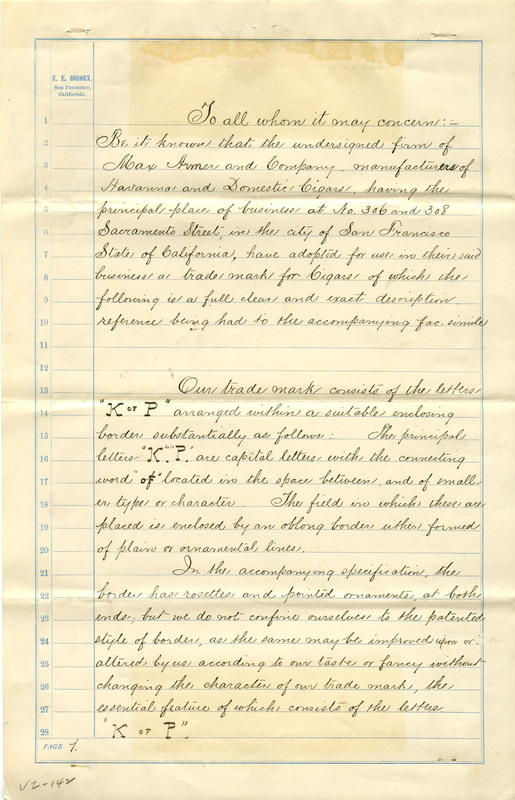 E. E. OSBORN,
San Francisco,
California.
1 To all whom it may concern:-
2 Be it known that the undersigned firm of
3 Max Armer and Company, manufacturers of
4 Havanna and Domestic Cigars, having the
5 principal place of business at No. 306 and 308
6 Sacramento Street, in the city of San Francisco
7 State of California, have adopted for use in their said
8 business a trade mark for Cigars of which the
9 following is a full clear and exact description
10 reference being had to the accompanying fac. simile
11
12
13 Our trade mark consists of the letters
14 "K OF P" arranged within a suitable enclosing
15 border substantially as follows: The principal
16 letters "K". "P". are capital letters with the connecting
17 word "of" located in the space between, and of small-
18 er type or character The field in which these are
19 placed is enclosed by an oblong border either formed
20 of plain or ornamental lines.
21 In the accompanying specification, the
22 border has rosettes and pointed ornaments, at both
23 ends; but we do not confine ourselves to the patented
24 style of border, as the same may be improved upon or
25 altered by us according to our taste or fancy without
26 changing the character of our trade mark, the
27 essential feature of which consists of the letters
28 "K OF P".
PAGE 1.
V2-142